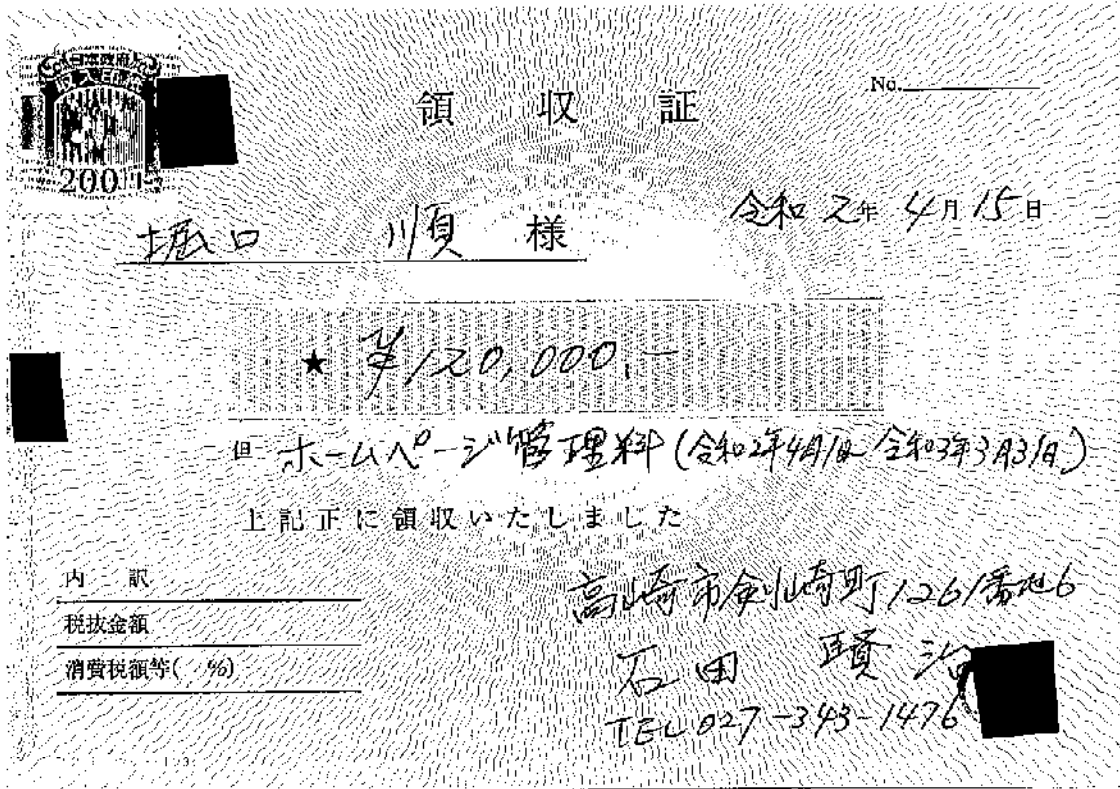 日本政府
収入印紙
200円
領収証
No.
令和2年4月15日
堀口 順 様
★ ¥120,000.-
但 ホームページ管理料(令和2年4月1日~令和3年3月31日)
上記正に領収いたしました
内訳
税抜金額
消費税額等( %)
高崎市剣崎町1261番地6
石田 賢治
TEL 027-343-1476